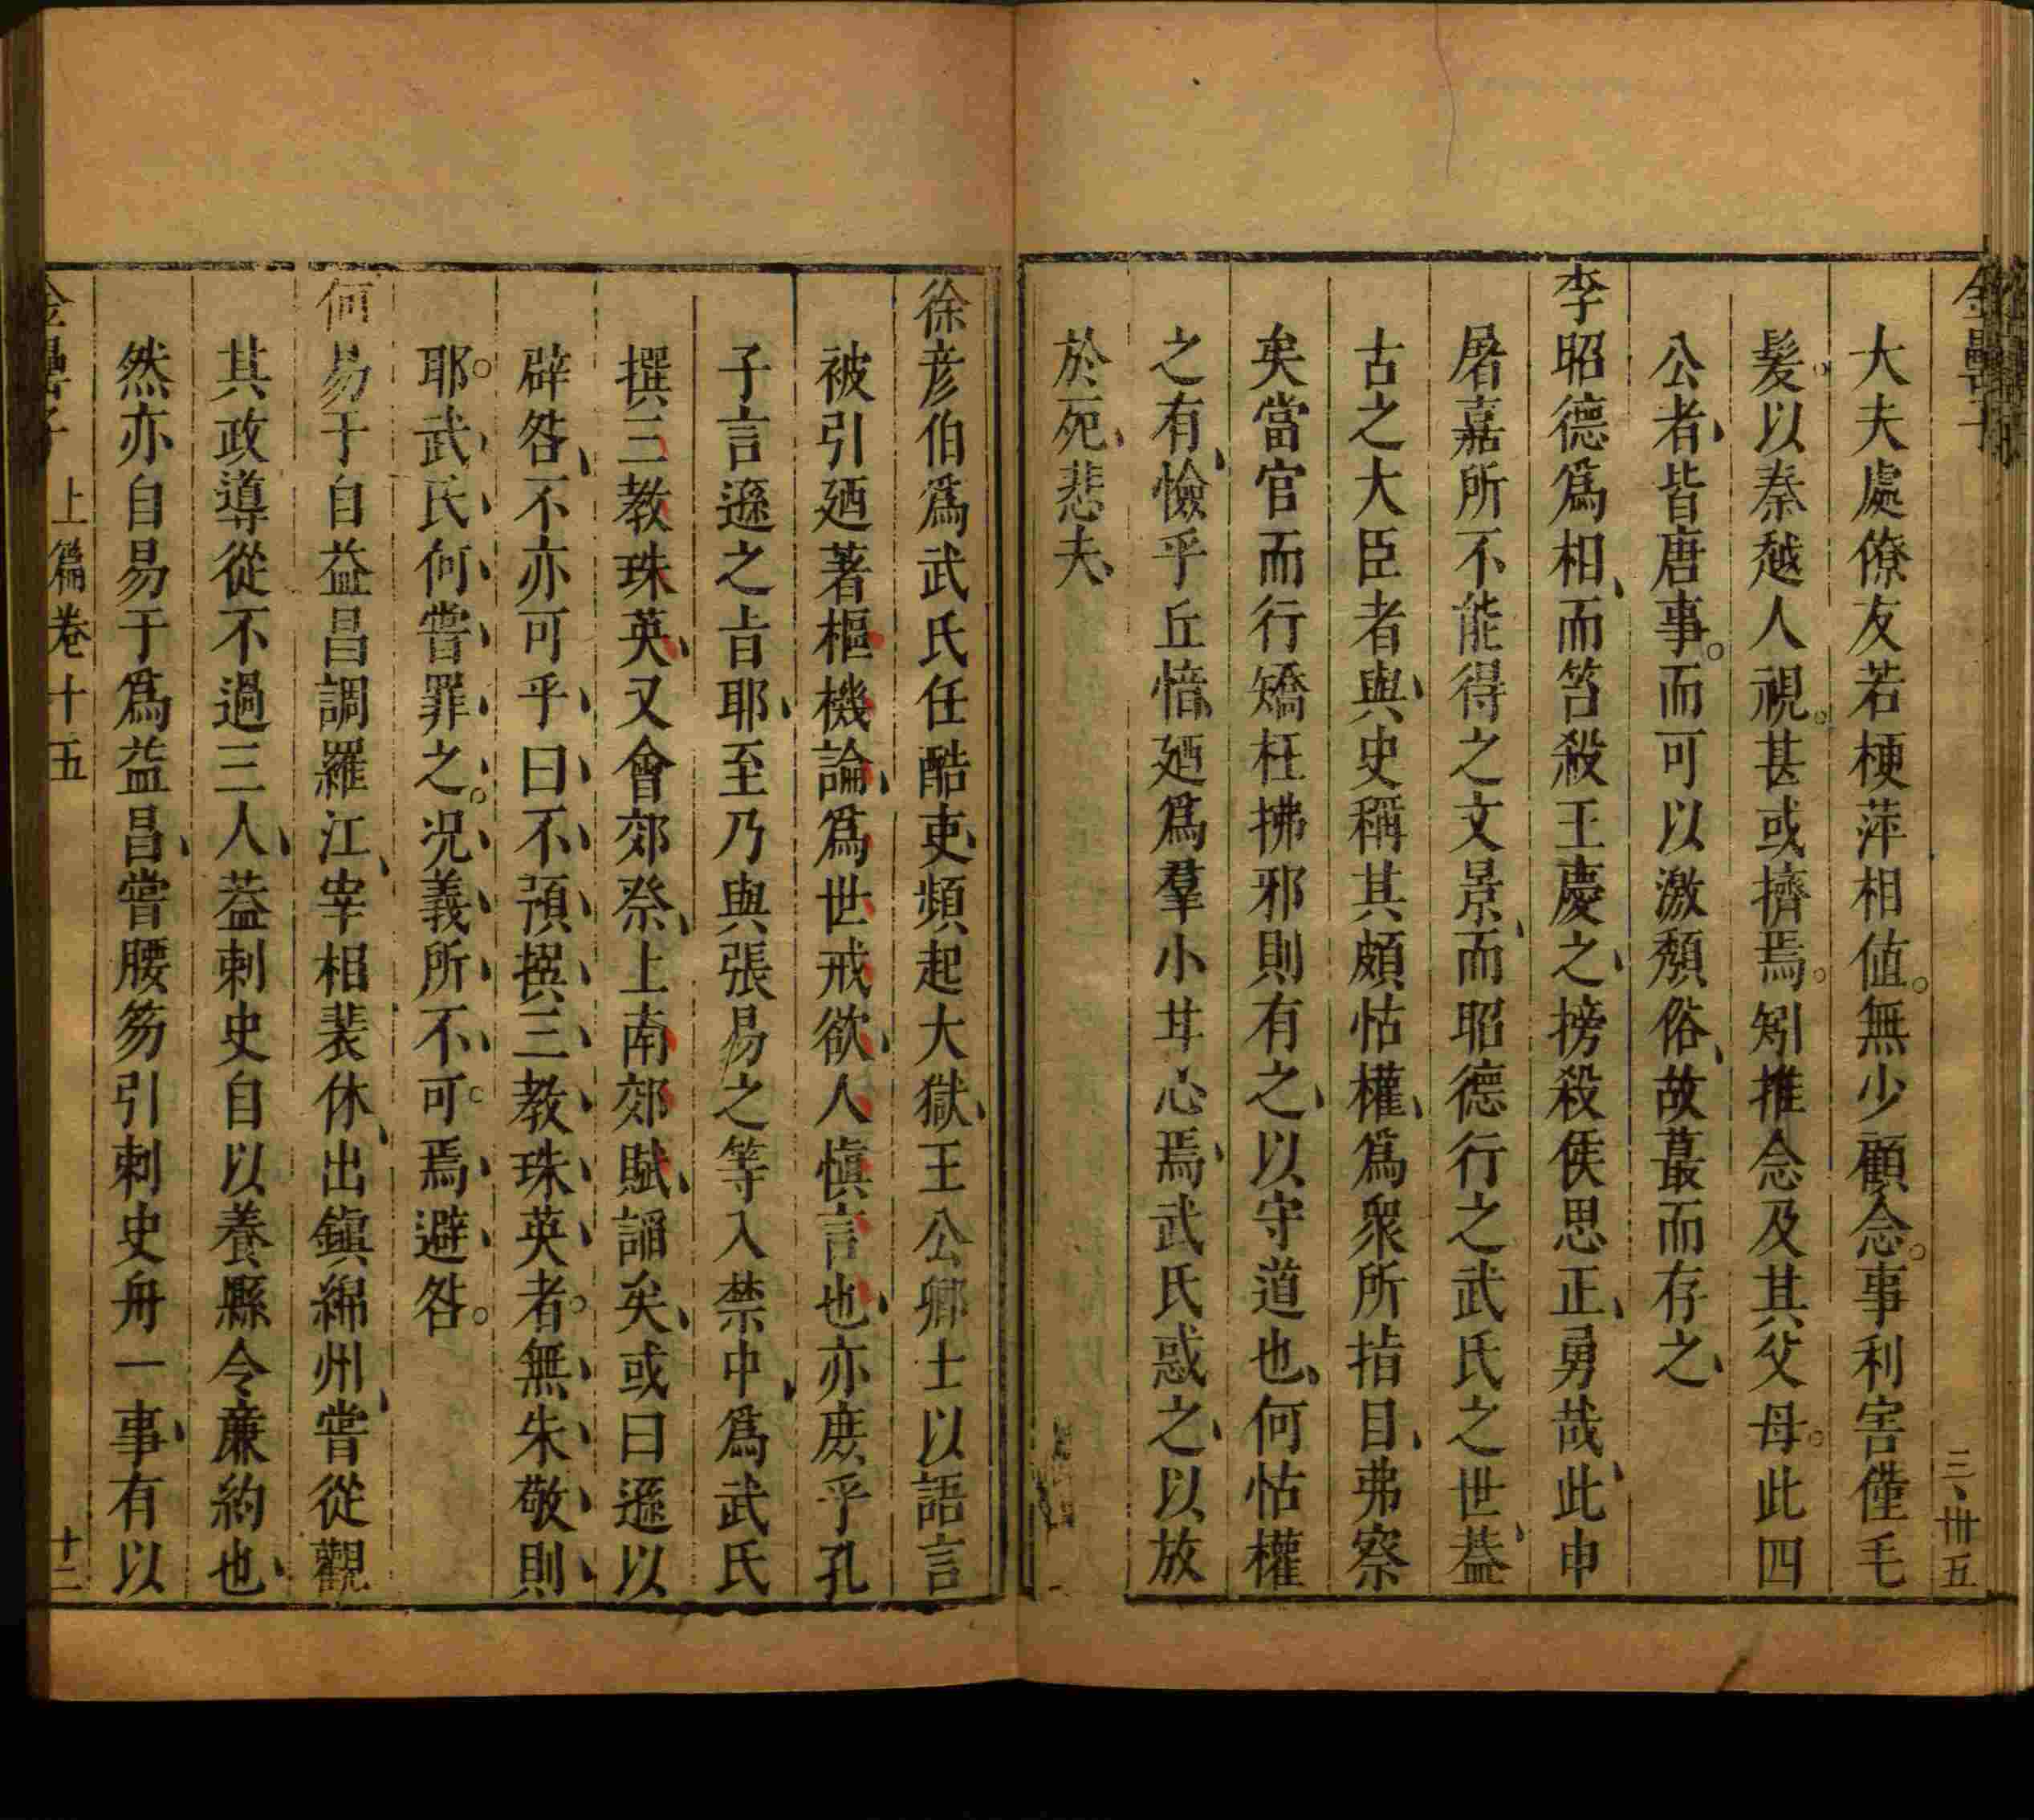 大夫處僚友若梗萍相值。無少顧念。事利害僅毛
髮。以秦越人視。甚或擠焉。矧推念及其父母。此四
公者、皆唐事。而可以激頹俗、故蕞而存之、
李昭德爲相、而笞殺王慶之、搒殺侯思正、勇哉、此申
屠嘉所不能得之文景、而昭德行之武氏之世、葢
古之大臣者與、史稱其頗怙權、爲衆所指目、弗察
矣當官而行矯枉拂邪則有之、以守道也、何怙權
之有、憸乎丘愔、廼爲羣小甘心焉、武氏惑之、以放
於死、悲夫、
徐彦伯爲武氏任酷吏、頻起大獄、王公卿士以語言
被引廼著樞機論、爲世戒欲、人慎言也、亦庶乎孔
子言遜之㫖耶、至乃與張易之等入禁中、爲武氏
撰三教珠英、又會郊祭、上南郊賦、謟矣、或曰遜以
辟咎、不亦可乎、曰、不、預、撰、三、教、珠、英、者。無、朱、敬、則、
耶。武、氏、何、嘗、罪、之。況、義、所、不、可。焉、避、咎。
何易于自益昌調羅江、宰相裴休、出鎮綿州、嘗從觀
其政導從不過三人、葢刺史自以養縣令廉約也、
然亦自易于爲益昌、嘗腰笏引刺史舟一事、有以
上篇卷十五
十二
三、卅五